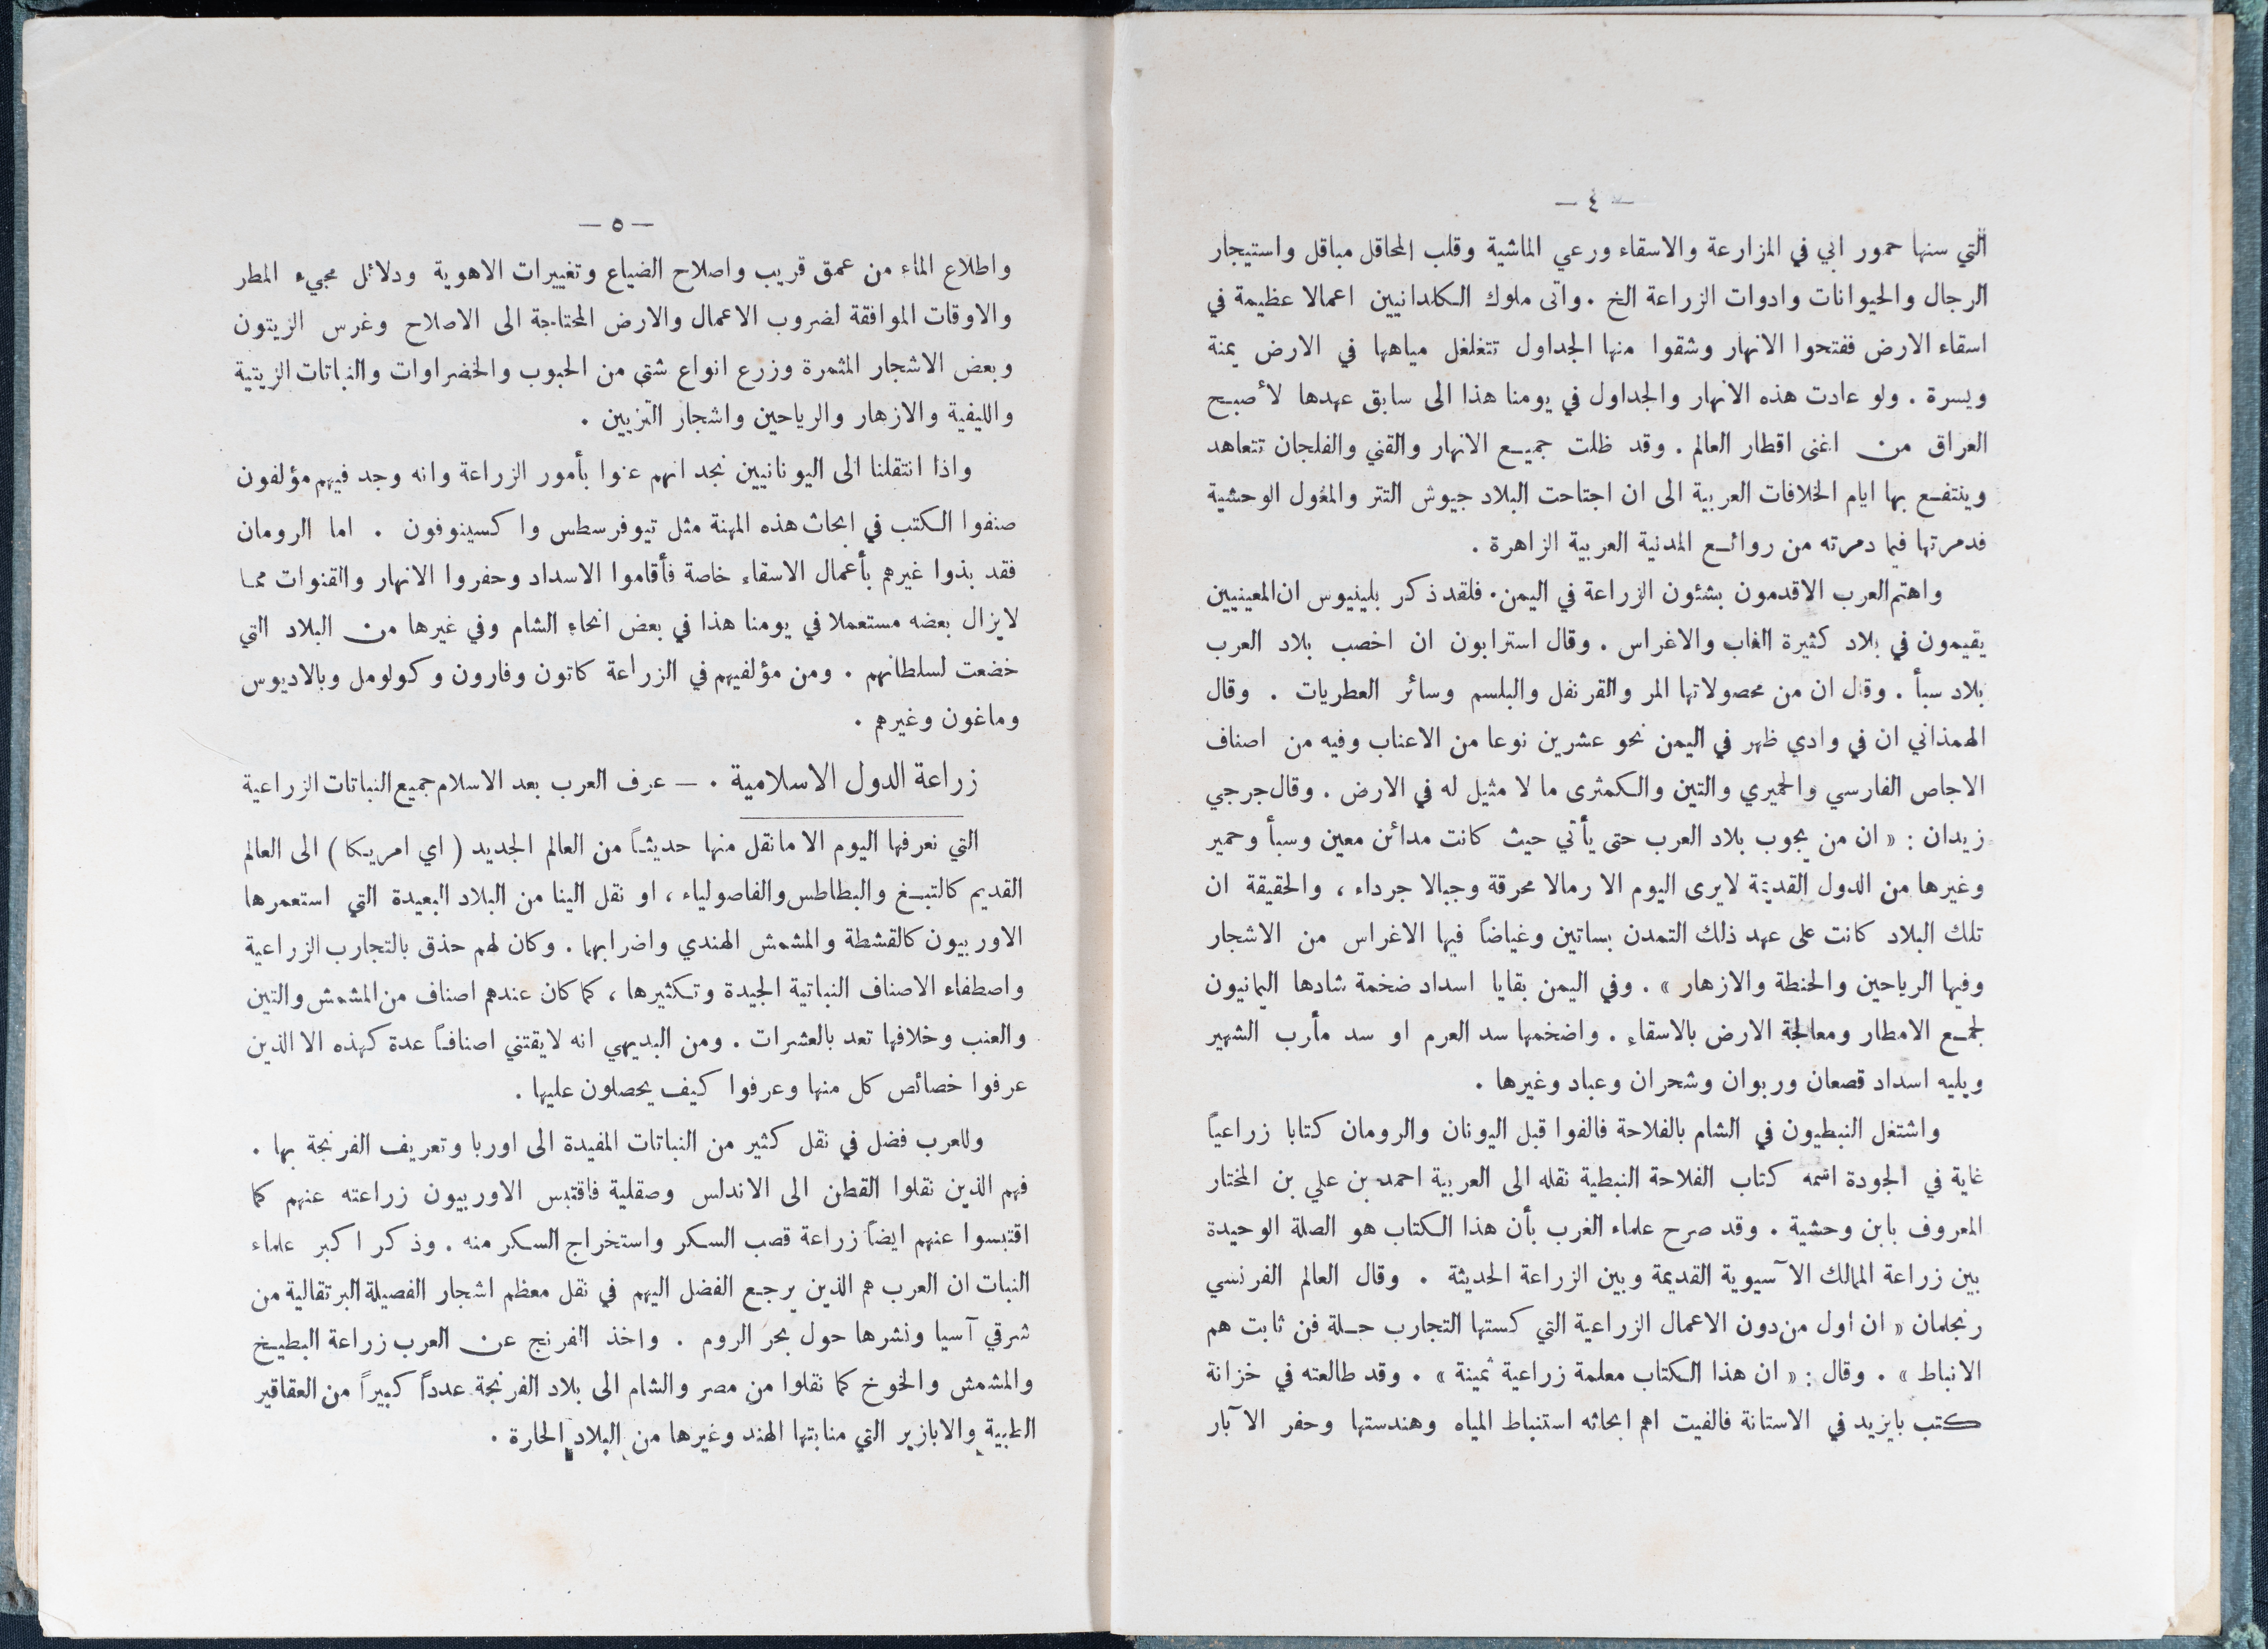 — ٤ —
التي سنها حمور ابي في المزارعة والاسقاء ورعي الماشية وقلب المحاقل مباقل واستيجار
الرجال والحيوانات وادوات الزراعة الخ . واتى ملوك الكلدانيين اعمالا عظيمة في
اسقاء الارض ففتحوا الانهار وشقوا منها الجداول تتغلغل مياهها في الارض يمنة
ويسرة . ولو عادت هذه الانهار والجداول في يومنا هذا الى سابق عهدها لأصبح
العراق من اغنى اقطار العالم . وقد ظلت جميع الانهار والقني والفلجان تتعاهد
وينتفع بها ايام الخلافات العربية الى ان اجتاحت البلاد جيوش التتر والمغول الوحشية
فدمرتها فيما دمرته من روائع المدنية العربية الزاهرة .
واهتم العرب الاقدمون بشئون الزراعة في اليمن . فلقد ذكر بلينيوس ان المعينيين
يقيمون في بلاد كثيرة الغاب والاغراس . وقال استرابون ان اخصب بلاد العرب
بلاد سبأ . وقال ان من محصولاتها المر والقرنفل والبلسم وسائر العطريات . وقال
الهمذاني ان في وادي ظهر في اليمن نحو عشرين نوعا من الاعناب وفيه من اصناف
الاجاص الفارسي والحميري والتين والكمثرى ما لا مثيل له في الارض . وقال جرجي
زيدان : « ان من يجوب بلاد العرب حتى يأتي حيث كانت مدائن معين وسبأ وحمير
وغيرها من الدول القديمة لايرى اليوم الا رمالا محرقة وجبالا جرداء ، والحقيقة ان
تلك البلاد كانت على عهد ذلك التمدن بساتين وغياضاً فيها الاغراس من الاشجار
وفيها الرياحين والحنطة والازهار » . وفي اليمن بقايا اسداد ضخمة شادها اليمانيون
لجمع الامطار ومعالجة الارض بالاسقاء . واضخمها سد العرم او سد مأرب الشهير
ويليه اسداد قصعان وربوان وشحران وعباد وغيرها .
واشتغل النبطيون في الشام بالفلاحة فالفوا قبل اليونان والرومان كتابا زراعياً
غاية في الجودة اسمه كتاب الفلاحة النبطية نقله الى العربية احمد بن علي بن المختار
المعروف بابن وحشية . وقد صرح علماء الغرب بأن هذا الكتاب هو الصلة الوحيدة
بين زراعة الممالك الآسيوية القديمة وبين الزراعة الحديثة . وقال العالم الفرنسي
رنجلمان « ان اول من دون الاعمال الزراعية التي كستها التجارب حلة فن ثابت هم
الانباط » . وقال : « ان هذا الكتاب معلمة زراعية ثمينة » . وقد طالعته في خزانة
كتب بايزيد في الاستانة فالفيت اهم ابحاثه استنباط المياه وهندستها وحفر الآبار
— ٥ —
واطلاع الماء من عمق قريب واصلاح الضياع وتغييرات الاهوية ودلائل مجيء المطر
والاوقات الموافقة لضروب الاعمال والارض المحتاجة الى الاصلاح وغرس الزيتون
وبعض الاشجار المثمرة وزرع انواع شتى من الحبوب والخضراوات والنباتات الزيتية
والليفية والازهار والرياحين واشجار التزيين .
واذا انتقلنا الى اليونانيين نجد انهم عنوا بأمور الزراعة وانه وجد فيهم مؤلفون
صنفوا الكتب في ابحاث هذه المهنة مثل تيوفرسطس واكسينوفون . اما الرومان
فقد بذوا غيرهم بأعمال الاسقاء خاصة فأقاموا الاسداد وحفروا الانهار والقنوات مما
لايزال بعضه مستعملا في يومنا هذا في بعض انحاء الشام وفي غيرها من البلاد التي
خضعت لسلطانهم . ومن مؤلفيهم في الزراعة كاتون وفارون وكولومل وبالاديوس
وماغون وغيرهم .
زراعة الدول الاسلامية . — عرف العرب بعد الاسلام جميع النباتات الزراعية
التي نعرفها اليوم الا مانقل منها حديثاً من العالم الجديد ( اي امريكا ) الى العالم
القديم كالتبغ والبطاطس والفاصولياء ، او نقل الينا من البلاد البعيدة التي استعمرها
الاوربيون كالقشطة والمشمش الهندي واضرابهما . وكان لهم حذق بالتجارب الزراعية
واصطفاء الاصناف النباتية الجيدة وتكثيرها ، كما كان عندهم اصناف من المشمش والتين
والعنب وخلافها تعد بالعشرات . ومن البديهي انه لايقتني اصنافاً عدة كهذه الا الذين
عرفوا خصائص كل منها وعرفوا كيف يحصلون عليها .
وللعرب فضل في نقل كثير من النباتات المفيدة الى اوربا وتعريف الفرنجة بها .
فهم الذين نقلوا القطن الى الاندلس وصقلية فاقتبس الاوربيون زراعته عنهم كما
اقتبسوا عنهم ايضاً زراعة قصب السكر واستخراج السكر منه . وذكر اكبر علماء
النبات ان العرب هم الذين يرجع الفضل اليهم في نقل معظم اشجار الفصيلة البرتقالية من
شرقي آسيا ونشرها حول بحر الروم . واخذ الفرنج عن العرب زراعة البطيخ
والمشمش والخوخ كما نقلوا من مصر والشام الى بلاد الفرنجة عدداً كبيراً من العقاقير
الطبية والابازير التي منابتها الهند وغيرها من البلاد الحارة .